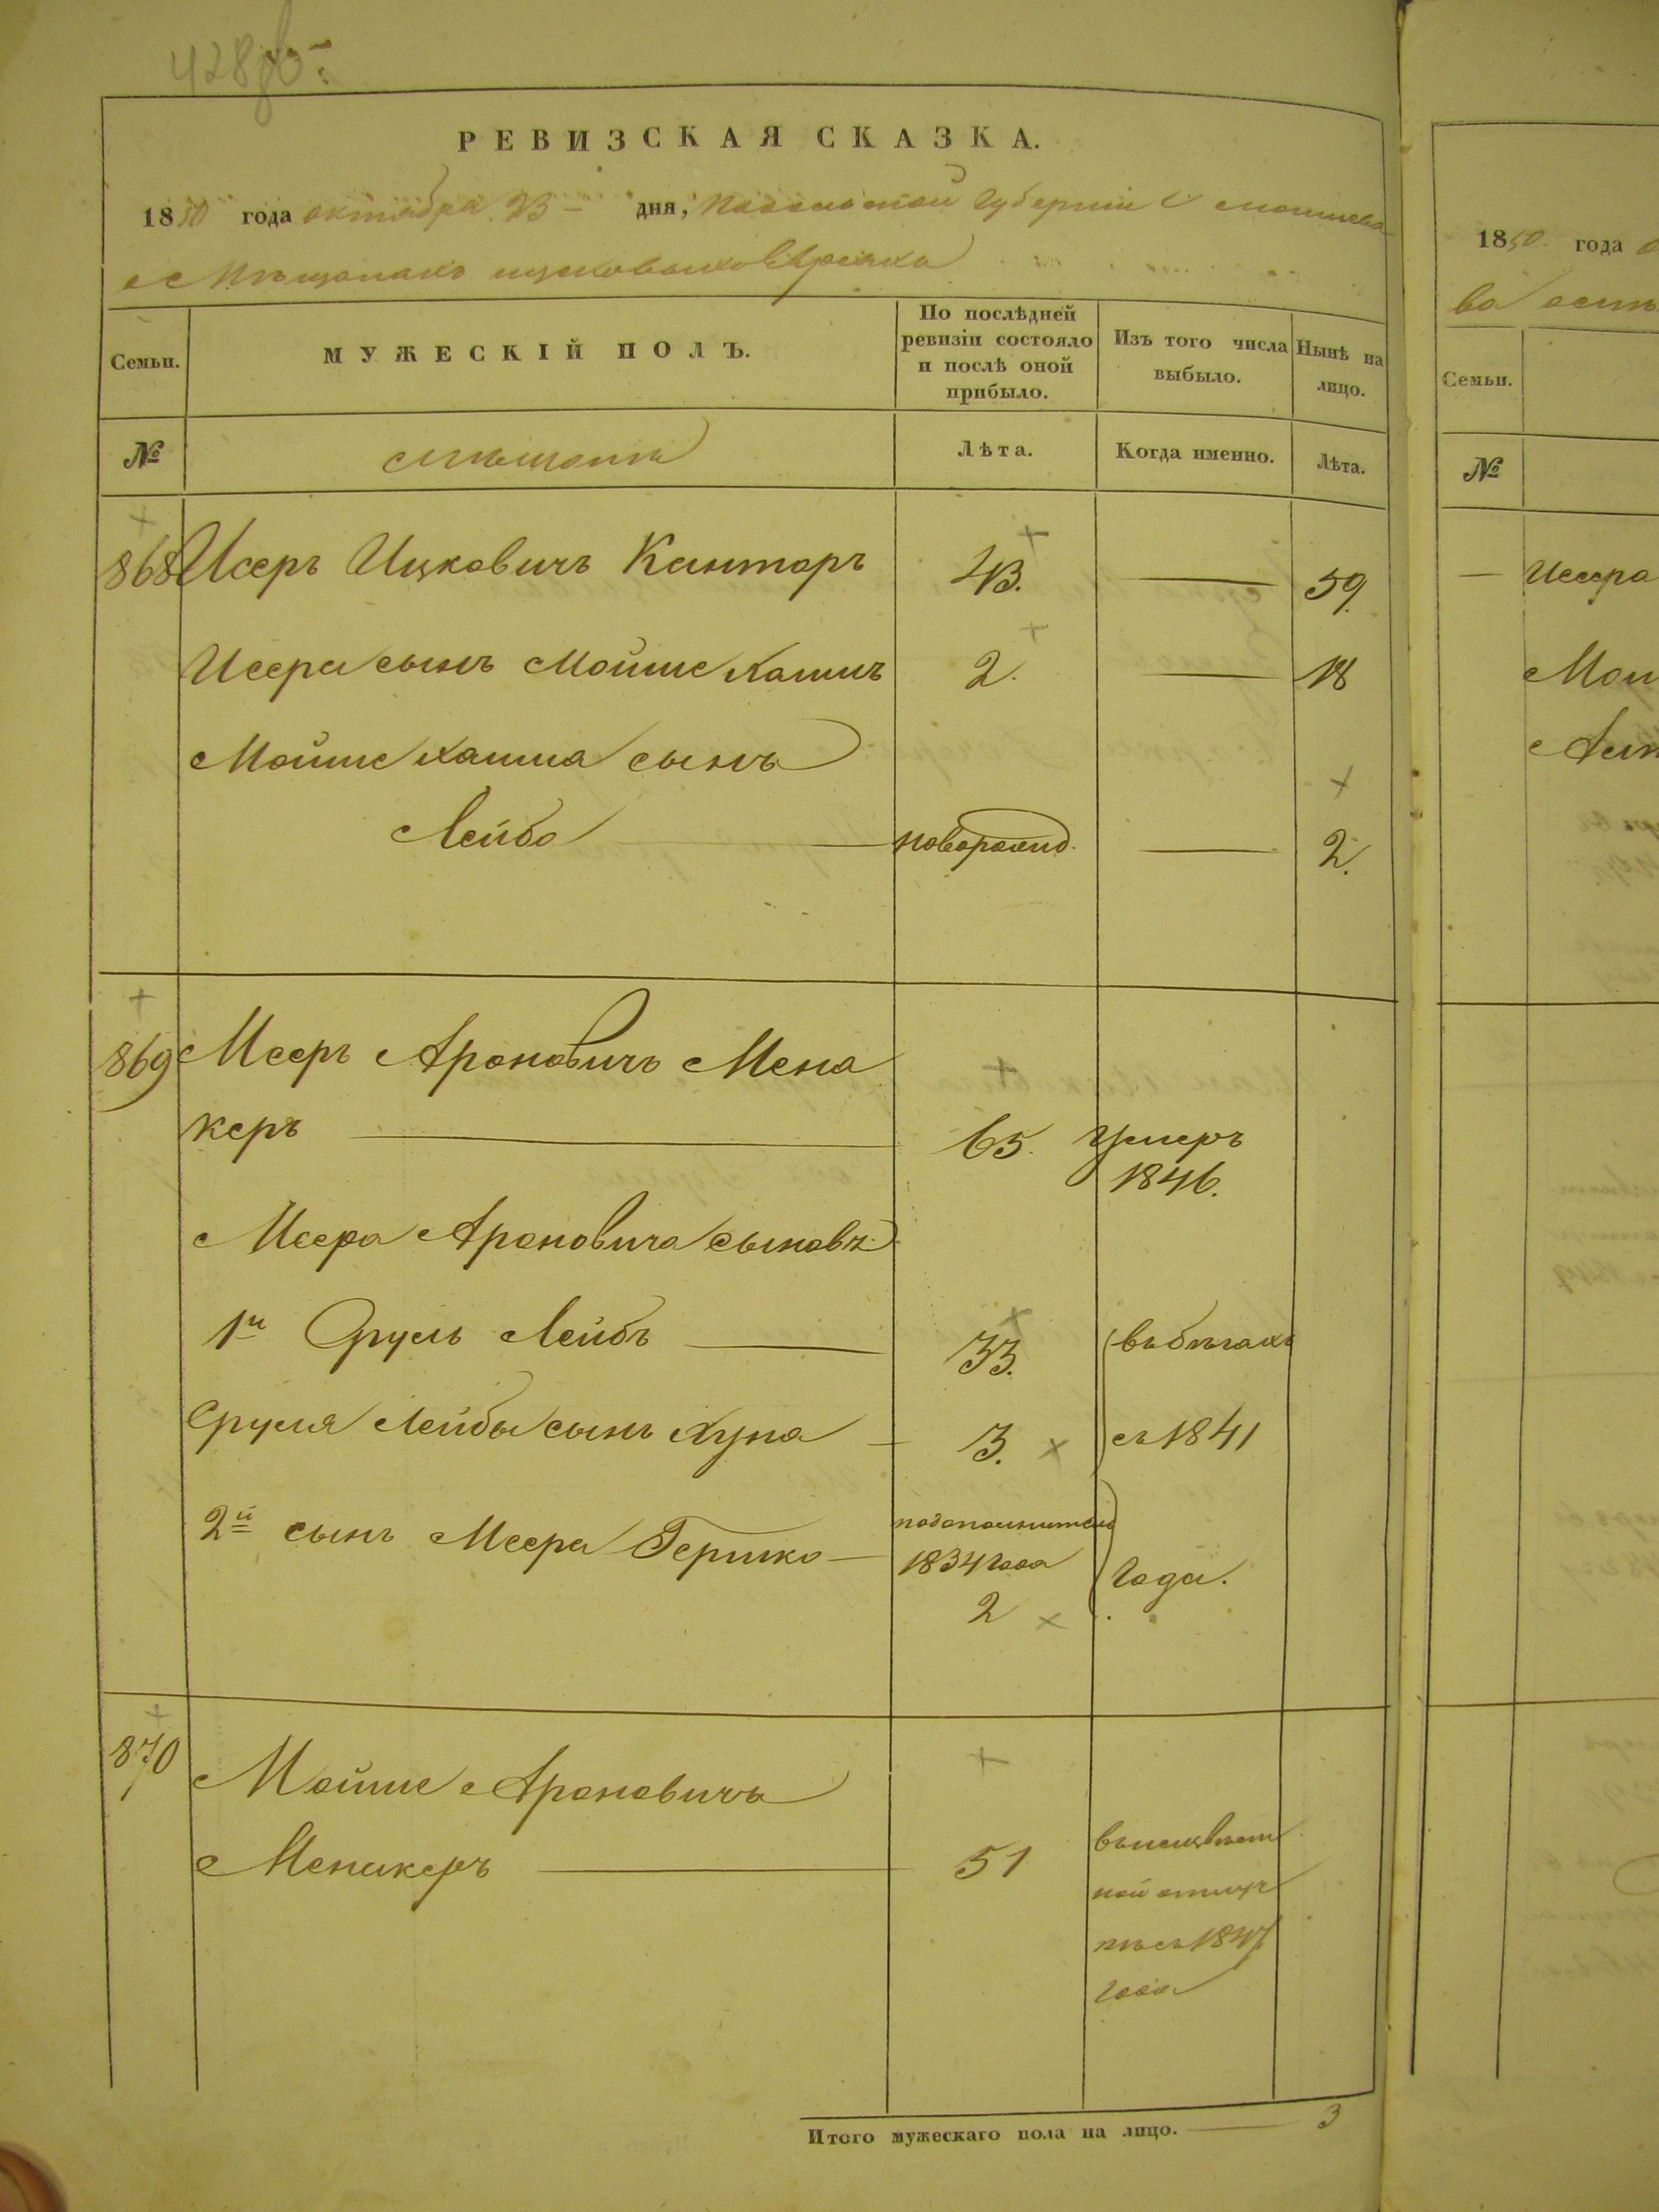 428об.
РЕВИЗСКАЯ СКАЗКА.
1850 года октября 23 дня, Подольской губерніи
о Мѣщанахъ Евреяхъ
Семьи.
МУЖЕСКІЙ ПОЛЪ.
По послѣдней ревизіи состояло и послѣ оной прибыло.
Изъ того числа выбыло.
Нынѣ на лицо.
№
мѣщане
Лѣта.
Когда именно.
Лѣта.
868 Исеръ Ицковичъ Канторъ 43. — 59.
Исера сынъ Мойше Хаимъ 2. — 18
Мойше Хаима сынъ
Лейба — новорожд. — 2.
869 Мееръ Ароновичъ Мена
керъ — 65. умеръ
1846.
Меера Ароновича сыновья
1й Сруль Лейбъ — 33. въ бѣгахъ
Сруля Лейбы сынъ Хуна — 3. съ 1841
2й сынъ Меера Гершко — подополнител
1834 года года.
2
870 Мойше Ароновичъ
Менакеръ — 51 въ неизвѣст
ной отлуч
кѣ съ 1847
года
Итого мужескаго пола на лицо. — 3
1850 года
во
Семьи.
№
— Исера
Мой